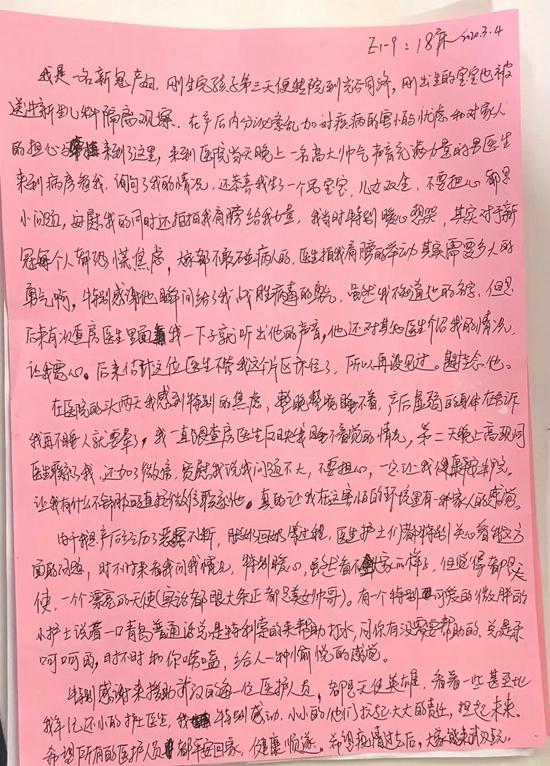 E1-9：18床 2020.3.4
我是一名新冠产妇，刚生完孩子第三天便转院到光谷同济，刚出生的宝宝也被
送进新生儿科隔离观察，在产后内分泌紊乱加对疾病的害怕忧虑和对家人
的担心 来到了这里，来到医院当天晚上一名高大帅气声音充满力量的男医生
来到病房看我，询问了我的情况，还恭喜我生了一个 宝宝，儿女双全，不要担心都是
小问题，安慰我的同时还拍拍我肩膀给我力量，我当时特别暖心想哭，其实对于新
冠每个人都恐慌焦虑，大家都不敢碰病人的，医生拍我肩膀的举动其实需要多大的
勇气啊，特别感谢他瞬间给了我战胜病毒的勇气，虽然我不知道他的名字，但是
后来有次查房医生里面我一下子就听出他的声音，他还对其他医生介绍我的情况，
让我安心。后来估计这位医生不管我这个片区床位了，所以再没见过。想念他。
在医院的头两天我感到特别的焦虑，整晚整晚睡不着，产后虚弱的身体在告诉
我再不睡人就要晕了，我一直跟查房医生反映我睡不着觉的情况，第二天晚上高 同
医生联系了我，还加了微信，安慰我说我问题不大，不要担心，一定让我健康 出院。
让我有什么不舒服可直接微信联系他。真的让我在这害怕的环境里有一种家人的感觉。
由于我产后经历了 不断，胀奶回奶等过程，医生护士们都特别关心着我各方
面的问题，时不时来看我问我情况，特别暖心，虽然看不 家的样子，但觉得都是天
使，一个漂亮的天使（实话都眼大条正都是美女帅哥）。有个特别可爱的微胖的
小护士说着一口青岛普通话总是特利索的来帮助打水，问你有没需要帮助的，总是乐
呵呵的，时不时和你唠嗑，给人一种愉悦的感觉。
特别感谢来援助武汉的每一位医护人员，都是天使英雄，看着一些甚至比
我年纪还小的护士医生，我特别感动，小小的他们扛起大大的责任，担起未来。
希望所有的医护人员都平安回家，健康顺遂。希望疫情过去后，大家能来武汉玩。